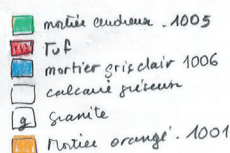 mortier cendreux . 1005
Tuf
mortier gris clair 1006
calcaire gréseux
g granite
Mortier orangé . 1001